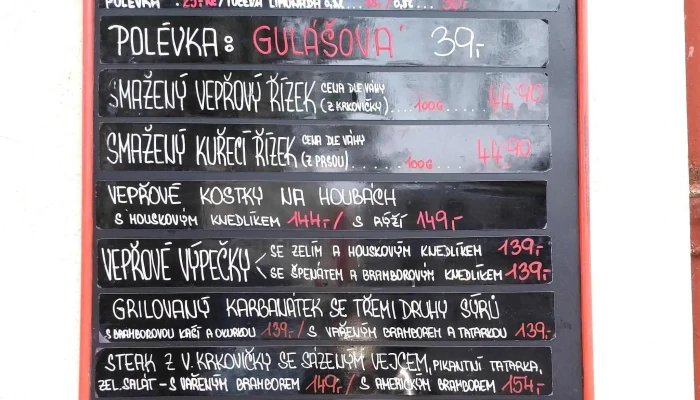 POLÉVKA: 25,-Kč / TOČENÁ LIMONÁDA 0,3L
POLÉVKA: GULÁŠOVÁ 39,-
SMAŽENÝ VEPŘOVÝ ŘÍZEK CENA DLE VÁHY
(Z KRKOVIČKY)....100G.... 44,90
SMAŽENÝ KUŘECÍ ŘÍZEK CENA DLE VÁHY
(Z PRSOU)......100G..... 44,90
VEPŘOVÉ KOSTKY NA HOUBÁCH
S HOUSKOVÝM KNEDLÍKEM 144,-/ S RÝŽÍ 149,-
VEPŘOVÉ VÝPEČKY SE ZELÍM A HOUSKOVÝM KNEDLÍKEM 139,-
SE ŠPENÁTEM A BRAMBOROVÝM KNEDLÍKEM 139,-
GRILOVANÝ KARBANÁTEK SE TŘEMI DRUHY SÝRŮ
S BRAMBOROVOU KAŠÍ A OKURKOU 139,-/ S VAŘENÝM BRAMBOREM A TATARKOU 139,-
STEAK Z V. KRKOVIČKY SE SÁZENÝM VEJCEM, PIKANTNÍ TATARKA,
ZEL. SALÁT - S VAŘENÝM BRAMBOREM 149,-/ S AMERICKÝM BRAMBOREM 154,-